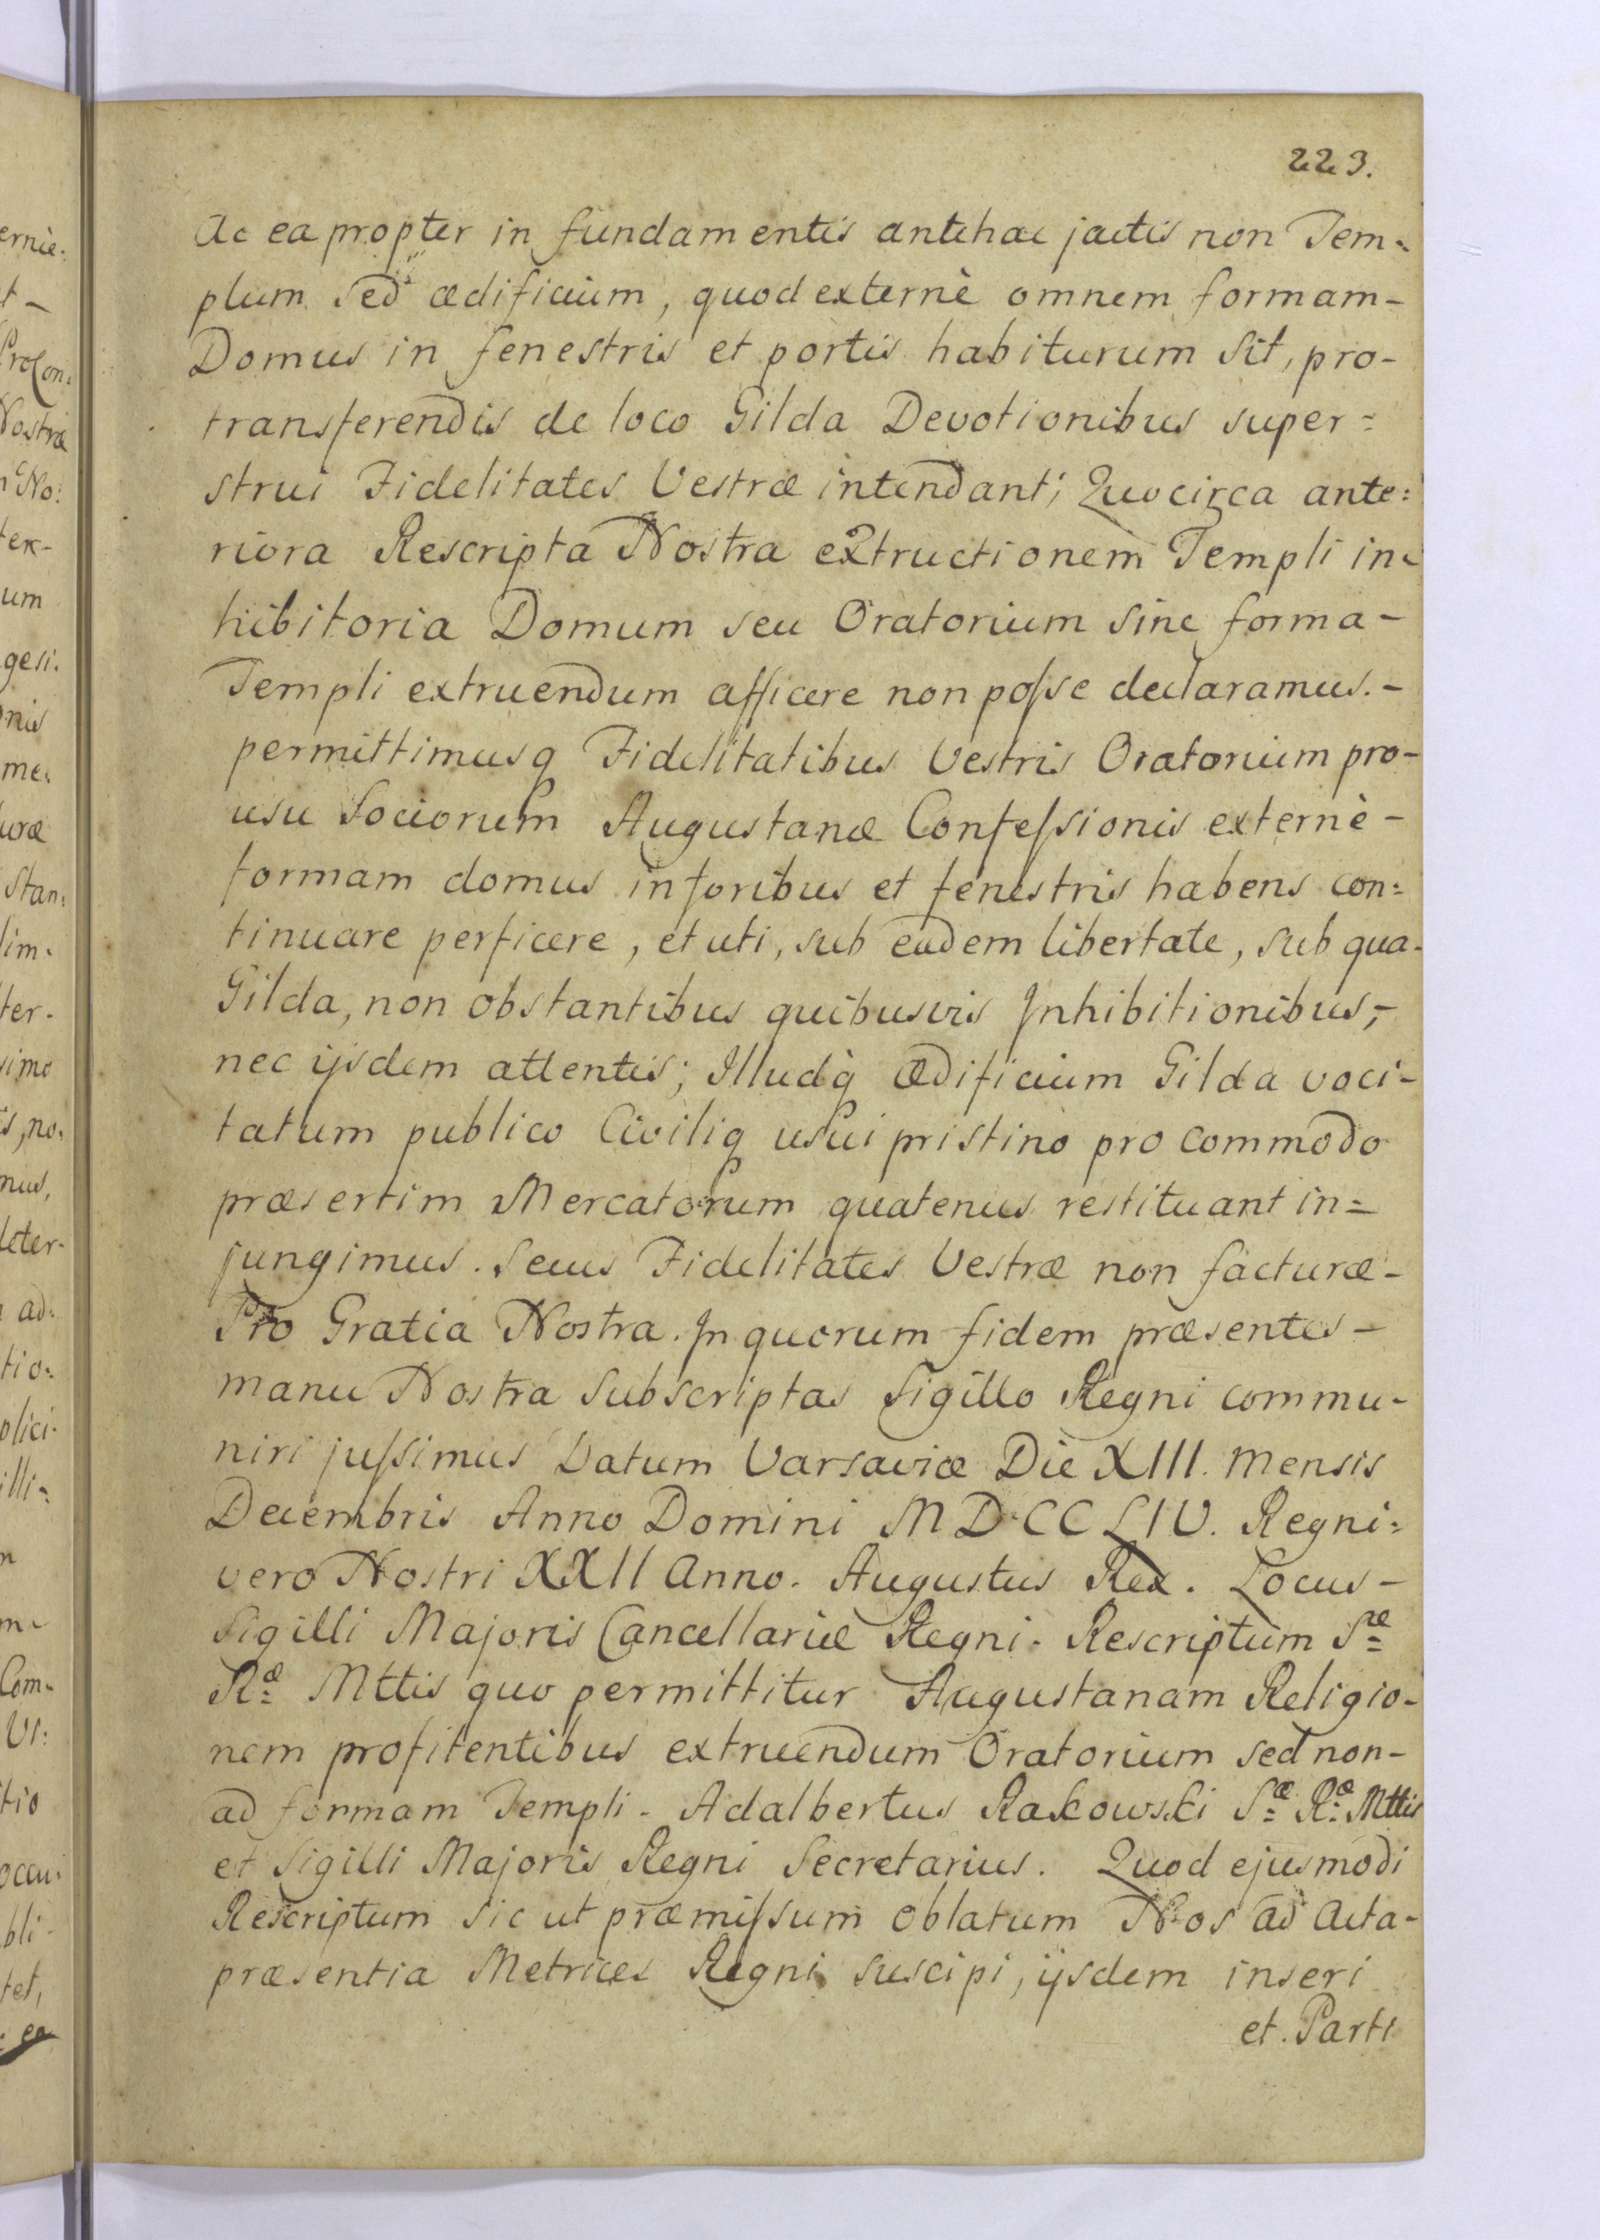 223.
Ac ea propter in fundamentis antehac jactis non Tem-
plum sed ædificium, quod externè omnem formam-
Domus in fenestris et portis habiturum sit, pro-
transferendis de loco Gilda Devotionibus super=
strui Fidelitates Vestræ intendant; Quocirca ante=
riora Rescripta Nostra extructionem Templi in-
hibitoria Domum seu Oratorium sine forma-
Templi extruendum afficere non poſse declaramus.-
permittimusq Fidelitatibus Vestris Oratorium pro-
usu Sociorum Augustanæ Confeſsionis externè-
formam domus in foribus et fenestris habens con=
tinuare perficere, et uti, sub eadem libertate, sub qua-
Gilda, non obstantibus quibusvis Inhibitionibus,-
nec ijsdem attentis; Illudq Ædificium Gilda voci-
tatum publico Civiliq usui pristino pro commodo
præsertim Mercatorum quatenus restituant in=
jungimus. Secus Fidelitates Vestræ non facturæ-
Pro Gratia Nostra. In quorum fidem præsentes-
manu Nostra Subscriptas Sigillo Regni commu-
niri juſsimus Datum Varsaviæ Die XIII. Mensis
Decembris Anno Domini MDCCLIV. Regni=
vero Nostri XXII Anno. Augustus Rex. Locus-
Sigilli Majoris Cancellariæ Regni. Rescriptum Sæ
Ræ Mttis quo permittitur Augustanam Religio-
nem profitentibus extruendum Oratorium sed non-
ad formam Templi. Adalbertus Rakowski Sæ Ræ Mttis
et Sigilli Majoris Regni Secretarius. Quod ejusmodi
Rescriptum sic ut præmiſsum oblatum Nos ad Acta-
præsentia Metrices Regni suscipi, ijsdem inseri
et Parti